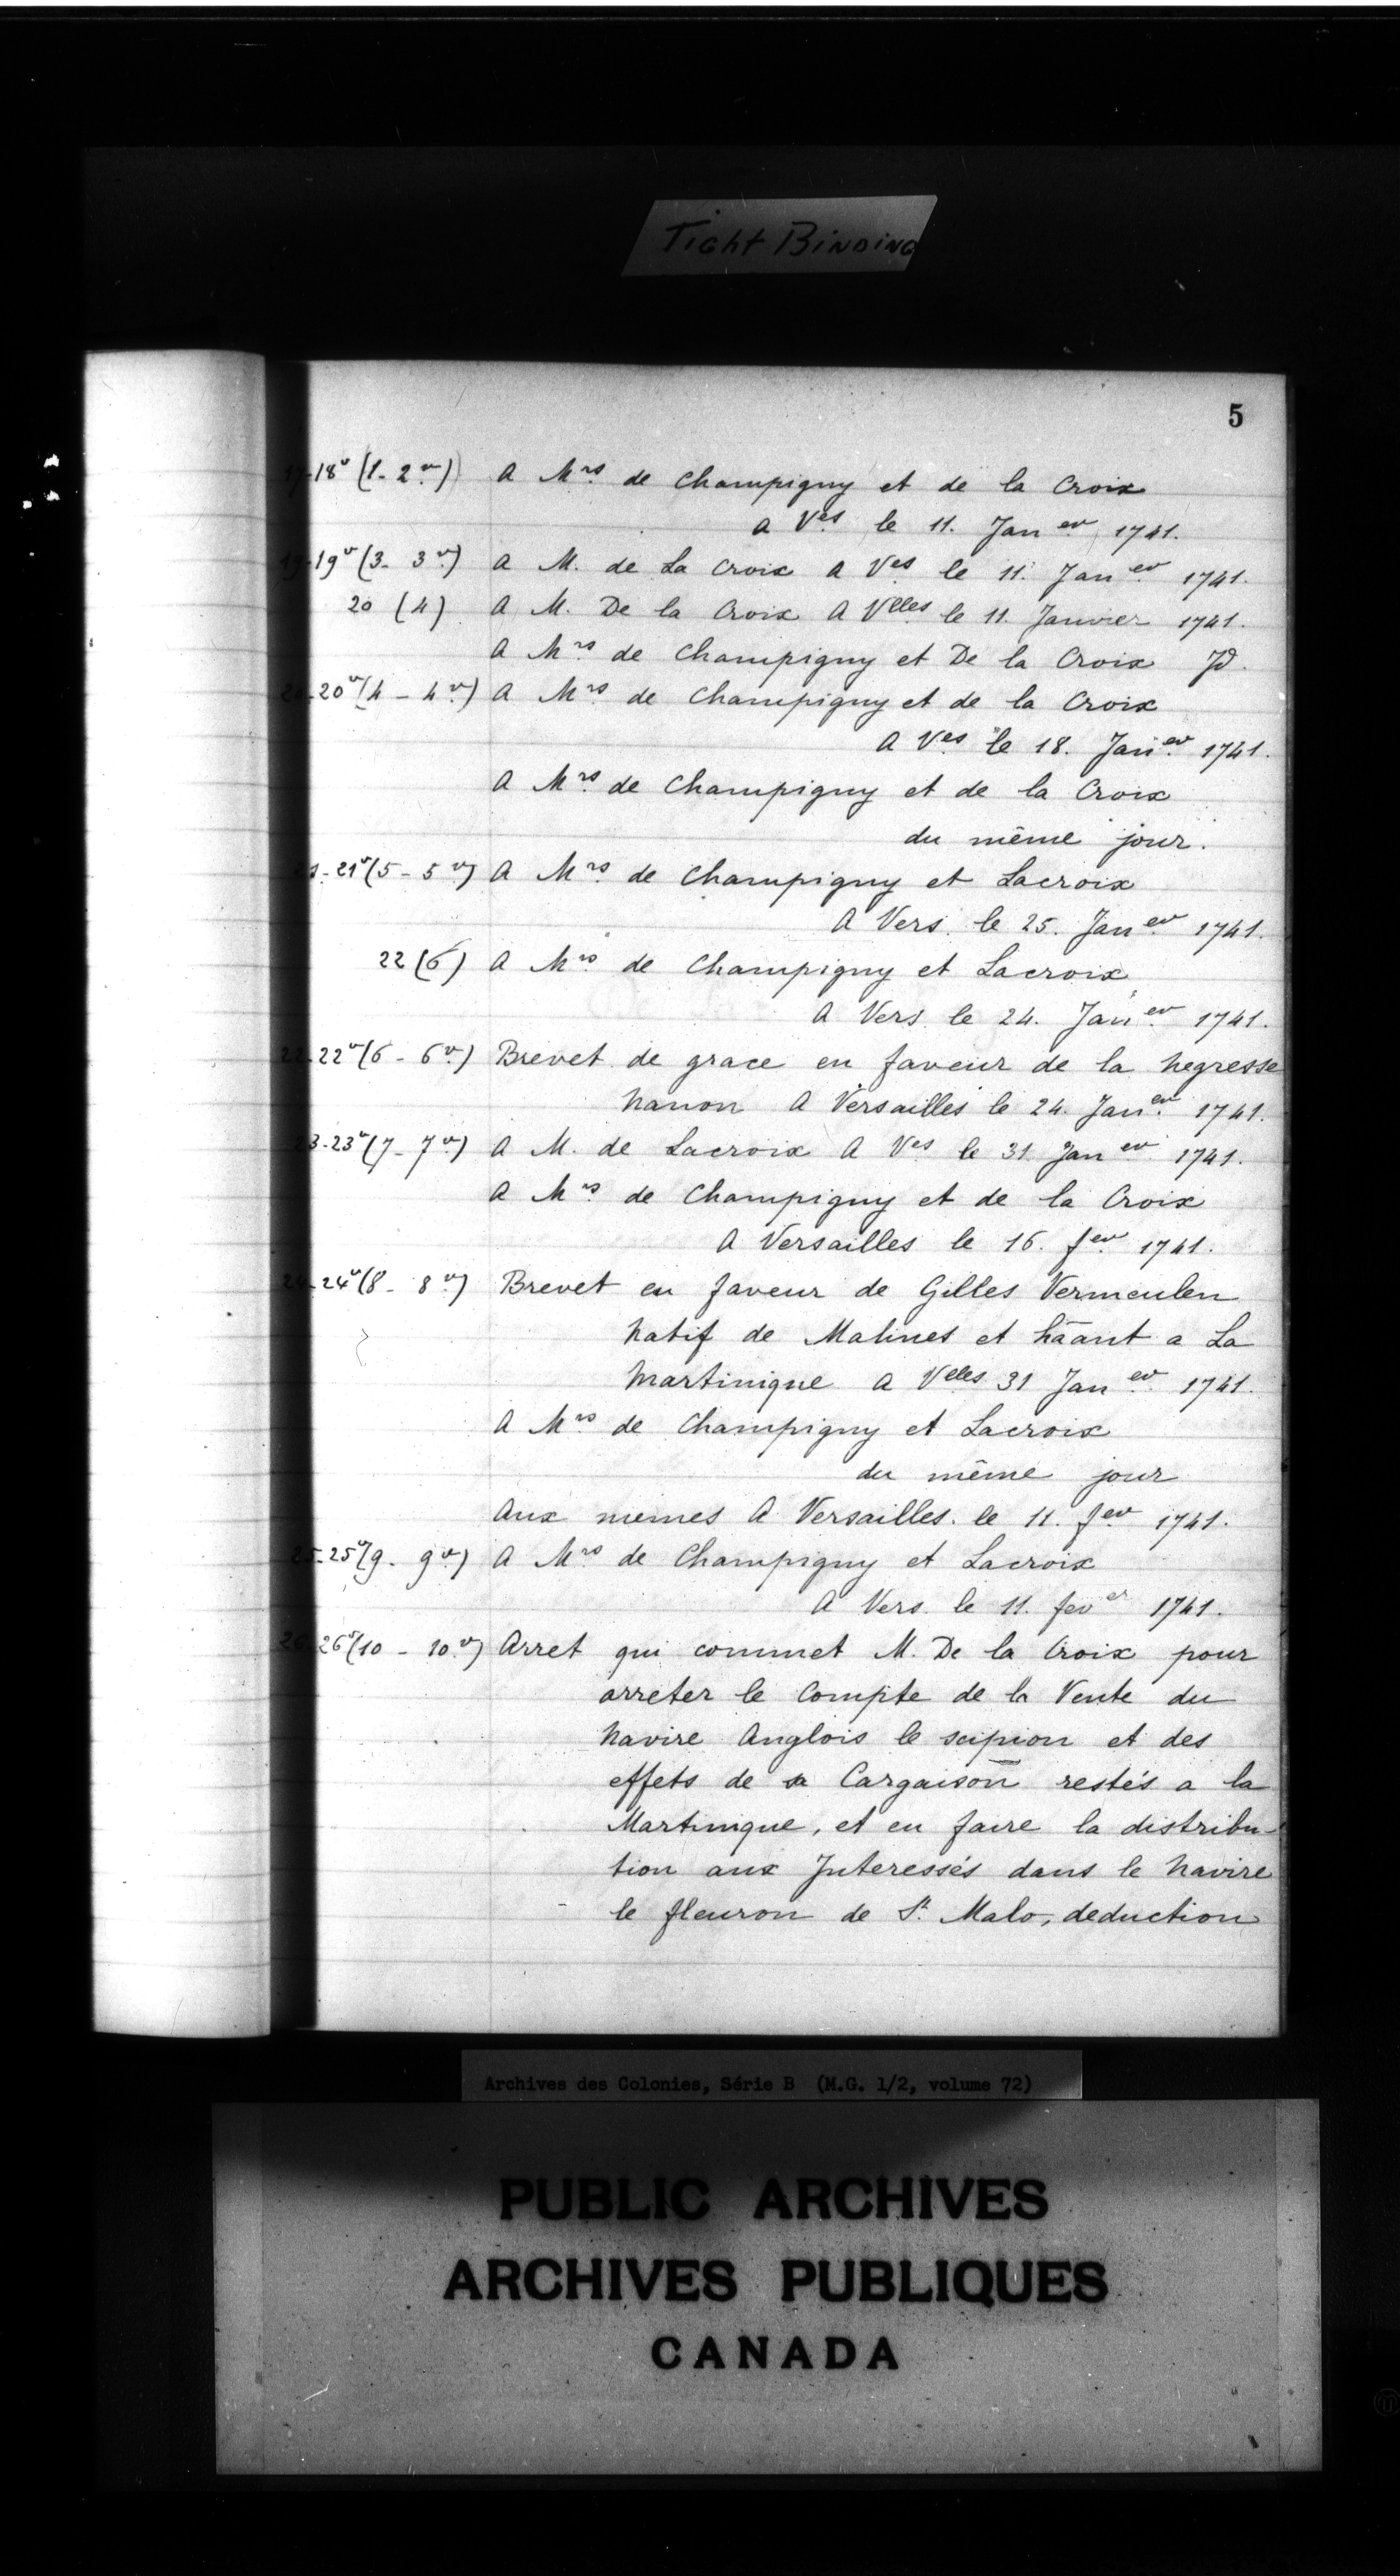 Tight Binding
5
17-18v (1-2v) A Mrs de Champigny et de la Croix
a Ves le 11. Janer 1741.
19-19v (3-3v) A M. de La Croix A Ves le 11. Janer 1741.
20 (4) A M. De la Croix A Vlles le 11. Janvier 1741.
A Mrs de Champigny et De la Croix Jd.
20-20v (4-4v) A Mrs de Champigny et de la Croix
A Ves le 18. Janer 1741.
A Mrs de Champigny et de la Croix
du même jour.
21-21v (5-5v) A Mrs de Champigny et Lacroix
A Vers. le 25. Janer 1741.
22 (6) A Mrs de Champigny et Lacroix
A Vers le 24. Janer 1741.
22-22v (6-6v) Brevet de grace en faveur de la negresse
Nanon A Versailles le 24. Janer 1741.
23-23v (7-7v) A M. de Lacroix A Ves le 31 Janer 1741.
A Mrs de Champigny et de la Croix
A Versailles le 16. fer 1741.
24-24v (8-8v) Brevet en faveur de Gilles Vermeulen
natif de Malines et hāant a La
Martinique a Vlles 31 Janer 1741.
A Mrs de Champigny et Lacroix
du même jour
Aux memes A Versailles. le 11. fer 1741.
25-25v (9-9v) A Mrs de Champigny et Lacroix
A Vers. le 11. fever 1741.
26-26v (10-10v) Arret qui commet M. De la Croix pour
arreter le Compte de la Vente du
navire Anglois le scipion et des
effets de sa Cargaison restés a la
Martinique, et en faire la distribu-
tion aux Interessés dans le navire
le fleuron de St. Malo, deduction
Archives des Colonies, Série B (M.G. 1/2, volume 72)
PUBLIC ARCHIVES
ARCHIVES PUBLIQUES
CANADA